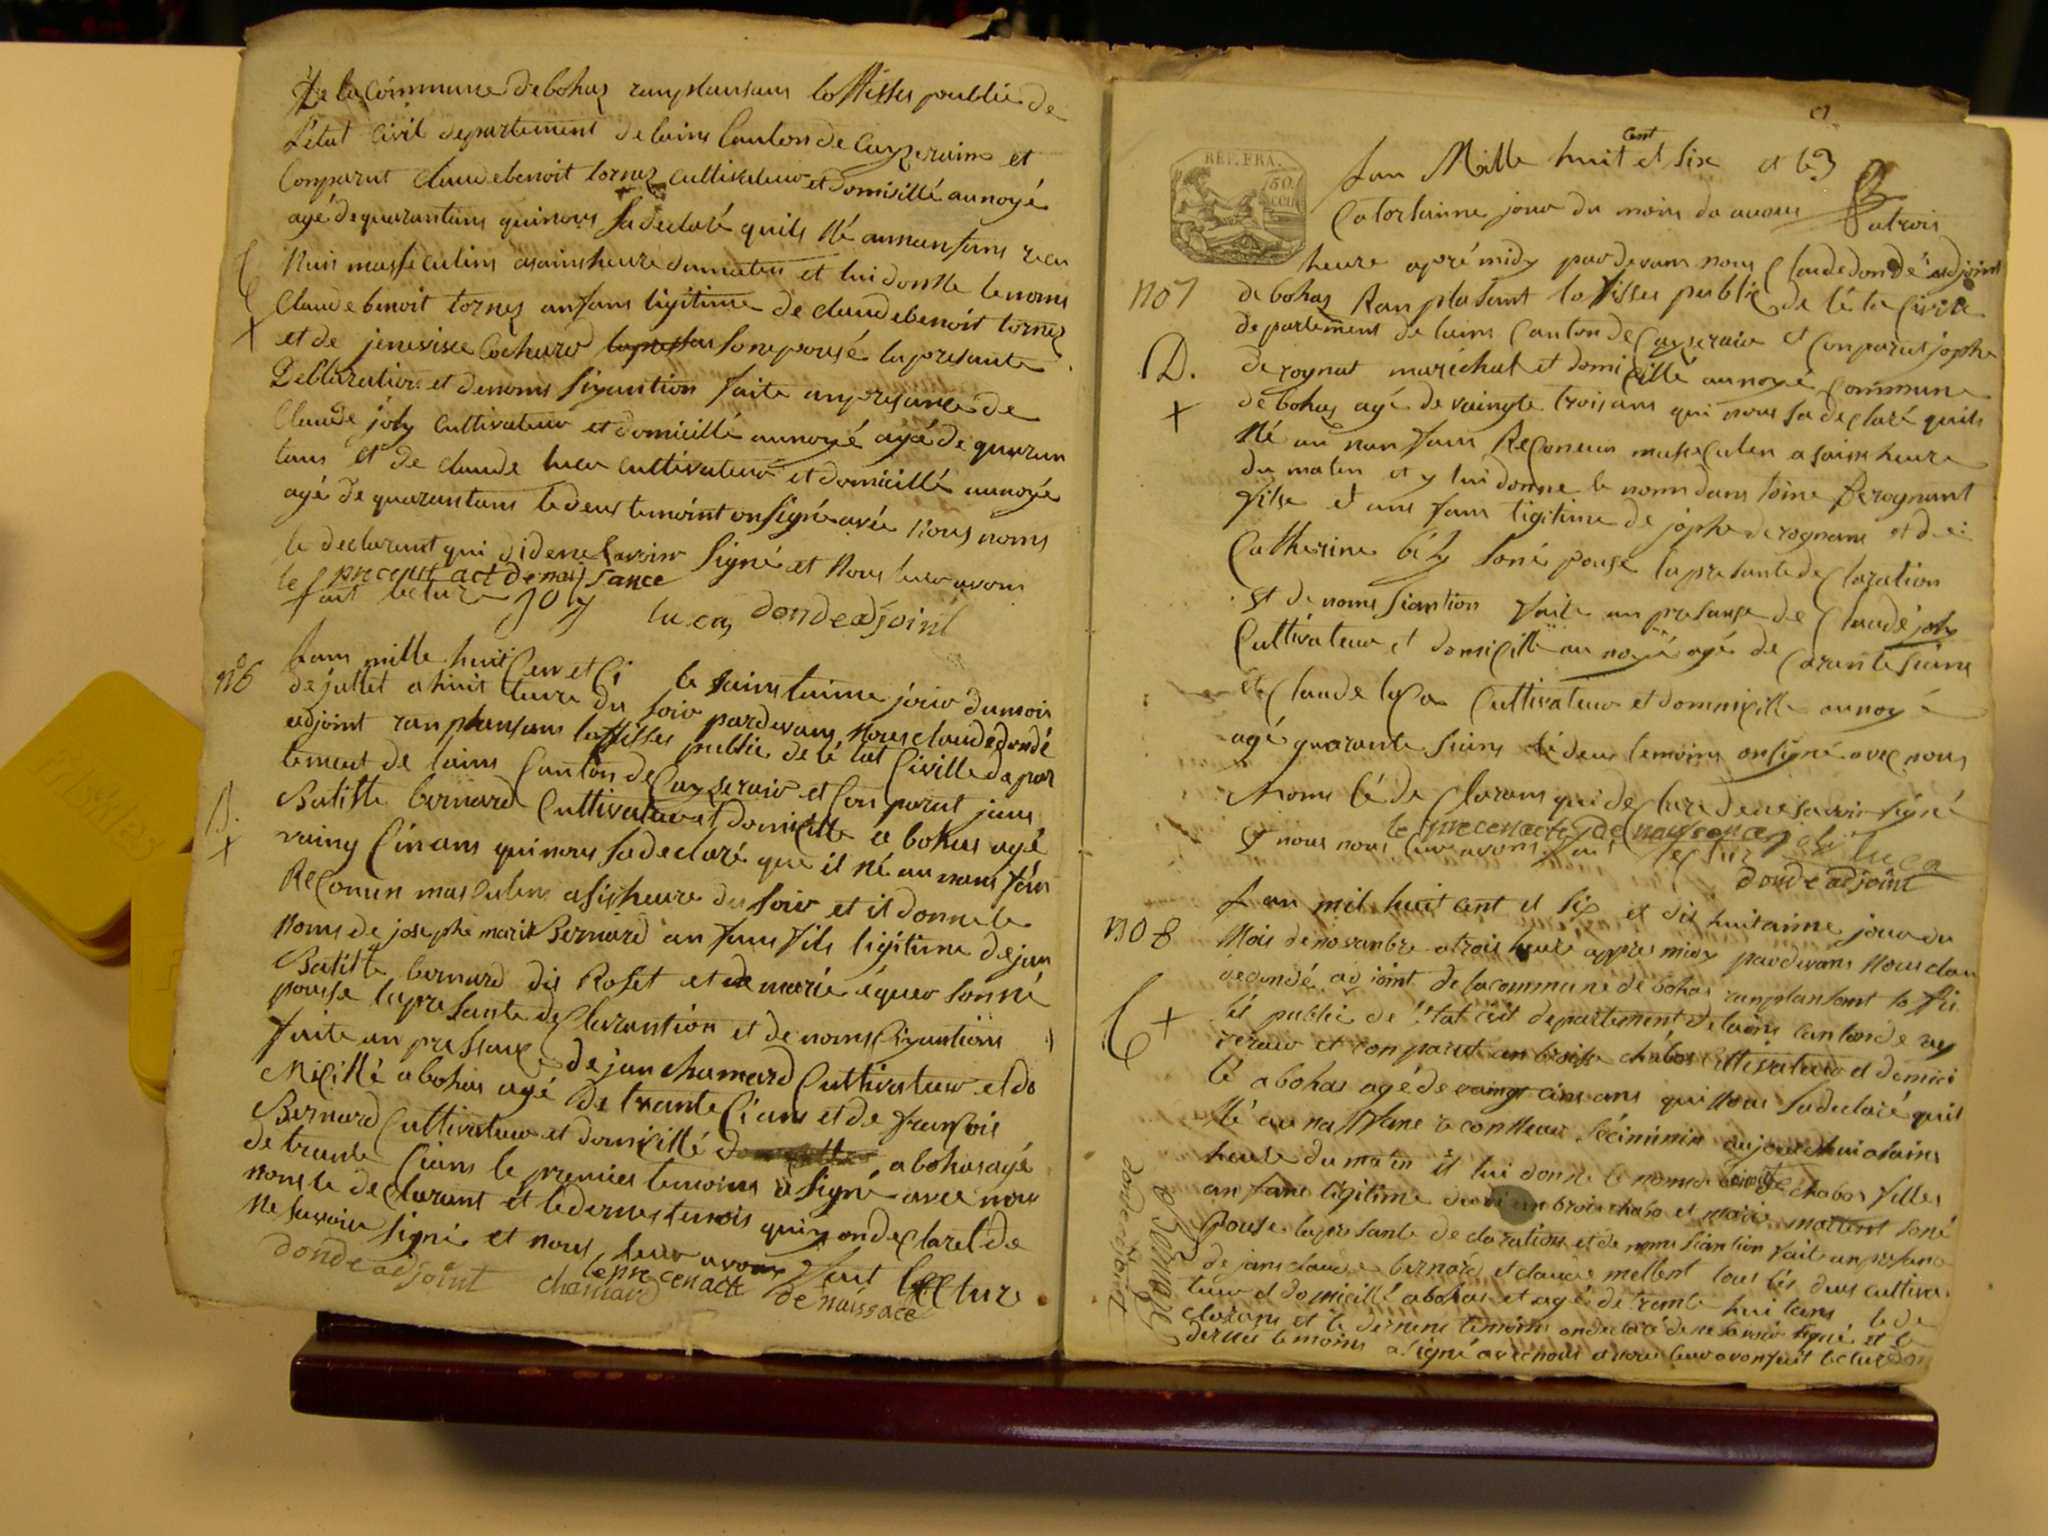 De la Commune de bohaz ranplansans lofisses publie de
L'etat Civil departement de lains Canton de Cayzerain et
Conparut claudebenoit tornez cultivateur et domisillé aunoyé
agé de quarantans quinous sa declaré quils Né aunanfans recu
Nuis masse culins asains heure dumatin et lui donne le noms
Claude benoit tornez anfans ligitime de claudebenoit tornez
et de jenevieve Cochard sonepousé la presante
Declaration et denoms siyantion faite anpresance de
Claude joly Cultivateur et domicillé aunoyé agé de quaran
tans et de claude luca cultivateur et domicillé aunoyé
agé de quarantans ledeus temoint on signé avée nous noms
le declarant qui didene savoir signé et Nous leur avons
le precent act de naissance
fait lecture joly lucas donde adjoint
no 6
Lans mille huit Cen et Ci le sains taime jour dumois
de jullet a huit heure du soir pardevans Nous claude dondé
adjoint ranplansans lofisses publie de lé tat Civille depar
tement de lains Canton de Cayzerair et Conparut jans
Batiste bernard Cultivateur et domicille a bohas agé
vaing Cin ans quinous sa declaré que il né au nans fans
ReConun masculin a sis heure du soir et il donne le
Noms de josephe marie Bernard an fans fils ligitime de jan
Batiste bernard dis Roset et de marie éguer sonné
pousse lapresante de Clarantion et de noms Ciyantions
faite an pressance de jan chamard Cultivateur et do
Micillé a bohas agé de trante Ci ans et de fransois
Bernard Cultivateur et domicillé a bohas agé
de trante Cians le premies temoins a signé avec nous
noms le declarant et le dernes temois quiy on declaret de
Ne savoir signé et nous leur avons fait lecture
le precen acte de naissace
donde adjoint chamard
B.
REP. FRA.
50.
Lan Mille huit cent et six et le
Catorlainne jour du mois de a trois
heure apré midy pardevans nous Claude dondé adjoint
no 7
de bohaz Ranplasant lofisses public de lé ta Civile
departement de lains Canton de Cayzerair et Conparut jophe
D.
derognat maréchal et domicillé aunoyé Commune
de bohas agé de vaingte trois ans qui nous sa declaré quils
Né au nan fans ReConeun masseculen a sains heure
du maten et y lui donne le nomn dans toine derognant
fisse et ans fans ligitime de jophe derognans et de
Catherine bély soné pouse la presante de Claration
et de noms siantion faite an presanse de Claude joly
Cultivateur et domicille au noyé agé de Carante sians
et Claude luca Cultivateur et dommicille aunoyé
agé quarante sians lé deus temoins onsigné avec nous
Noms lé de Clarans qui de Clare de ne savoir signé
le precen acte de naissance
et nous nous leur avons fait lectur joly luca
donde adjoint
no 8
Lan mil huit cent et six et dis huitainne jour du
Mois de novanbre a trois heure appres midy pardevans Nous clau
de dondé adjoint de la commune de bohas ranplansant lo fi
sés public de l'état civil departement de lains canton de cey
zerair et conparut anbroisse chabos cultivateur et domici
lé a bohas agé de vaingt cins ans qui Nous sa declaré quil
Né au nanffans reconneu féciminin aujourdhui a sains
heure du matin il lui donne le noms chabos filles
an fans ligitime de anbrois chabo et marie mottent soné
pouse la presante declaration et de noms siantion fait an presans
de jans claude bernard et claude mellent tous les deus cultiva
teur et domicillé a bohas et agé de trante huitans le de
clarans et le dernene temoins on declaré de ne savoir signé et le
dernier temoins a signé avec nous et nous leur avon fait lecture
donde adjoint